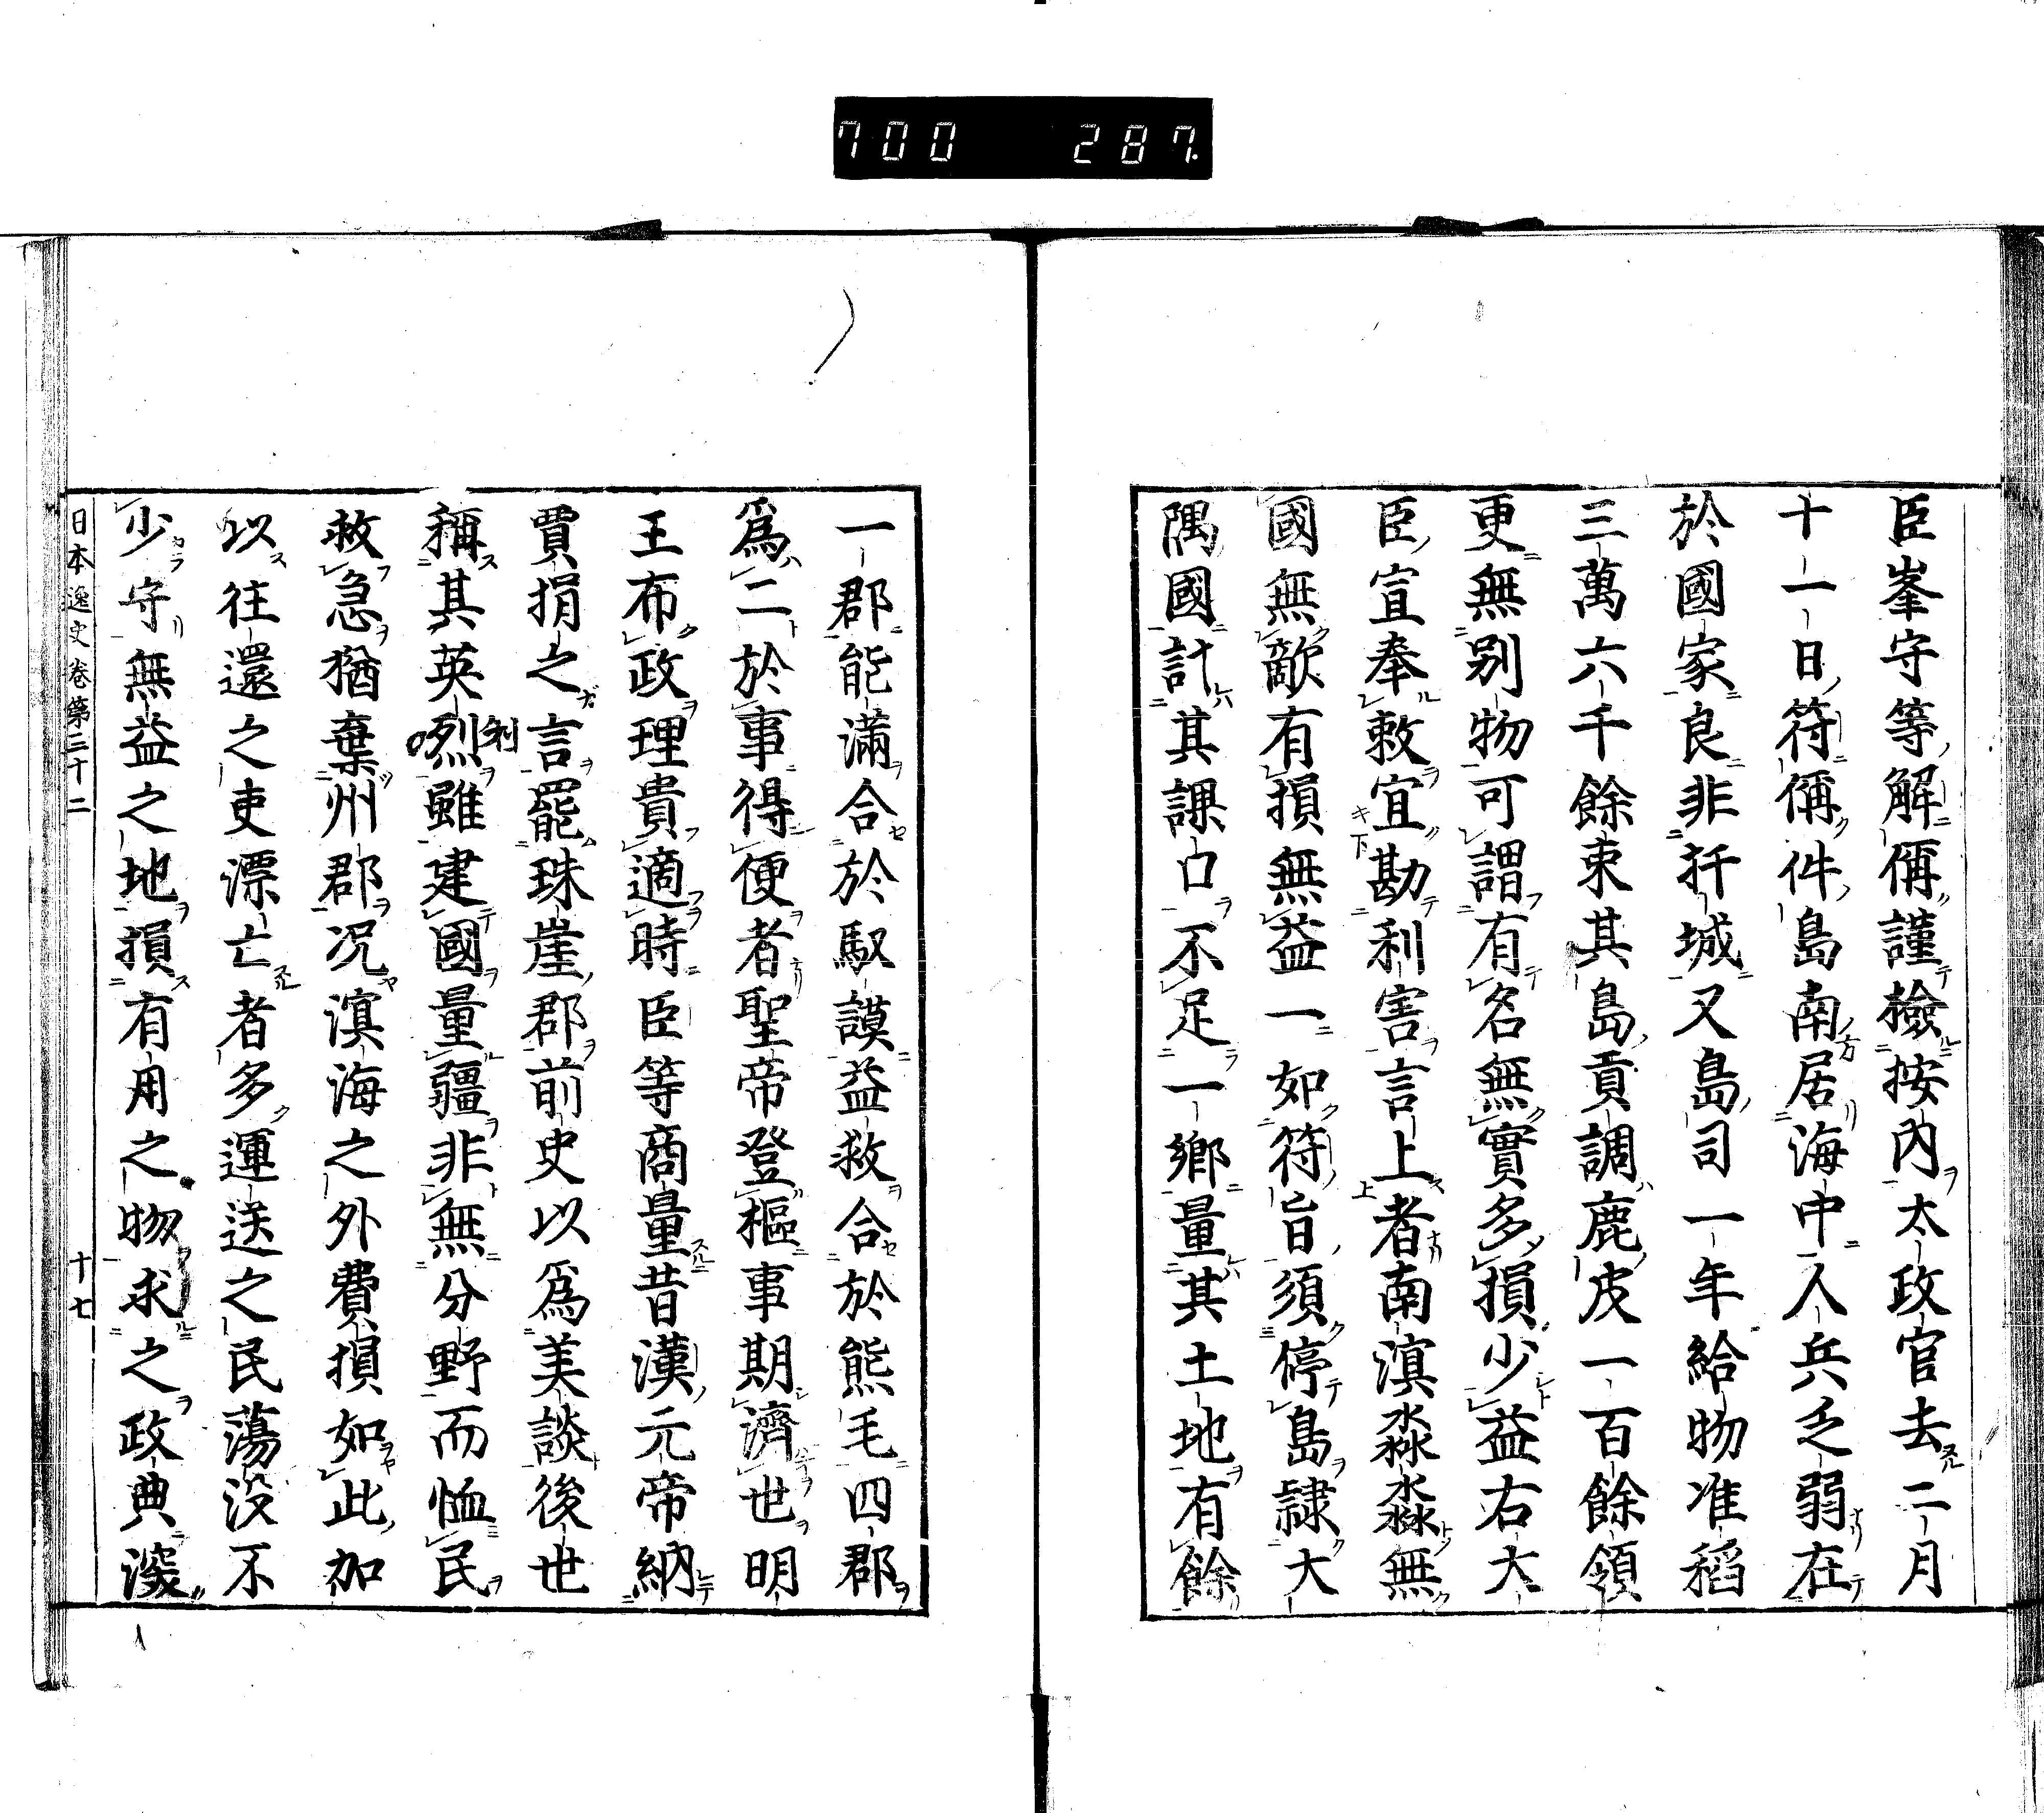 700 287.
臣峯守等解偁謹檢按内太政官去二月
十一日符偁件島南居海中人兵乏弱在
於國家良非扞城又島司一年給物准稻
三萬六千餘束其島貢調鹿皮一百餘領
更無別物可謂有名無實多損少益右大
臣宣奉敕宜勘利害言上者南溟淼淼無
國無敵有損無益一如符旨須停島隷大
隅國計其課口不足一郷量其土地有餘
一郡能滿合於馭謨益救合於熊毛四郡
爲二於事得便者聖帝登樞事期濟世明
王布政理貴適時臣等商量昔漢元帝納
賈捐之言罷珠崖郡前史以爲美談後世
稱其英烈雖建國量疆非無分野而恤民
救急猶棄州郡况溟海之外費損如此加
以往還之吏漂亡者多運送之民蕩没不
少守無益之地損有用之物求之政典深
日本逸史卷第三十二 十七